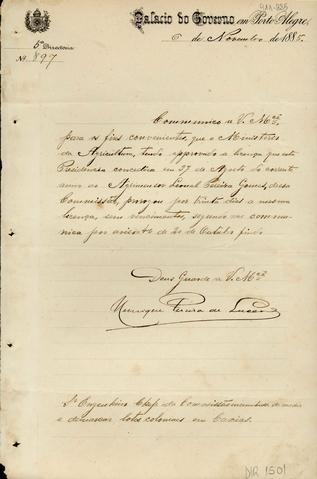 911-985
Palacio do Governo em Porto Alegre,
5ª Directoria
6 de Novembro de 1885.
Nº 897
Communico a V. Mcê
para os fins convenientes, que o Ministerio
da Agricultura, tendo approvado a licença que esta
Presidencia concedeu em 27 de Agosto do corrente
anno ao Agrimensor Leonel Pereira Gomes, dessa
Commissão, prorogou por trinta dias a mesma
licença, sem vencimentos, segundo me commu-
nica por aviso de 20 de Outubro findo.
Deus Guarde a V. Mcê
Henrique Pereira de Lucena
Sr. Engenheiro Chefe da Commissão incumbida de medir
e demarcar lotes coloniaes em Caxias.
DIR 1501